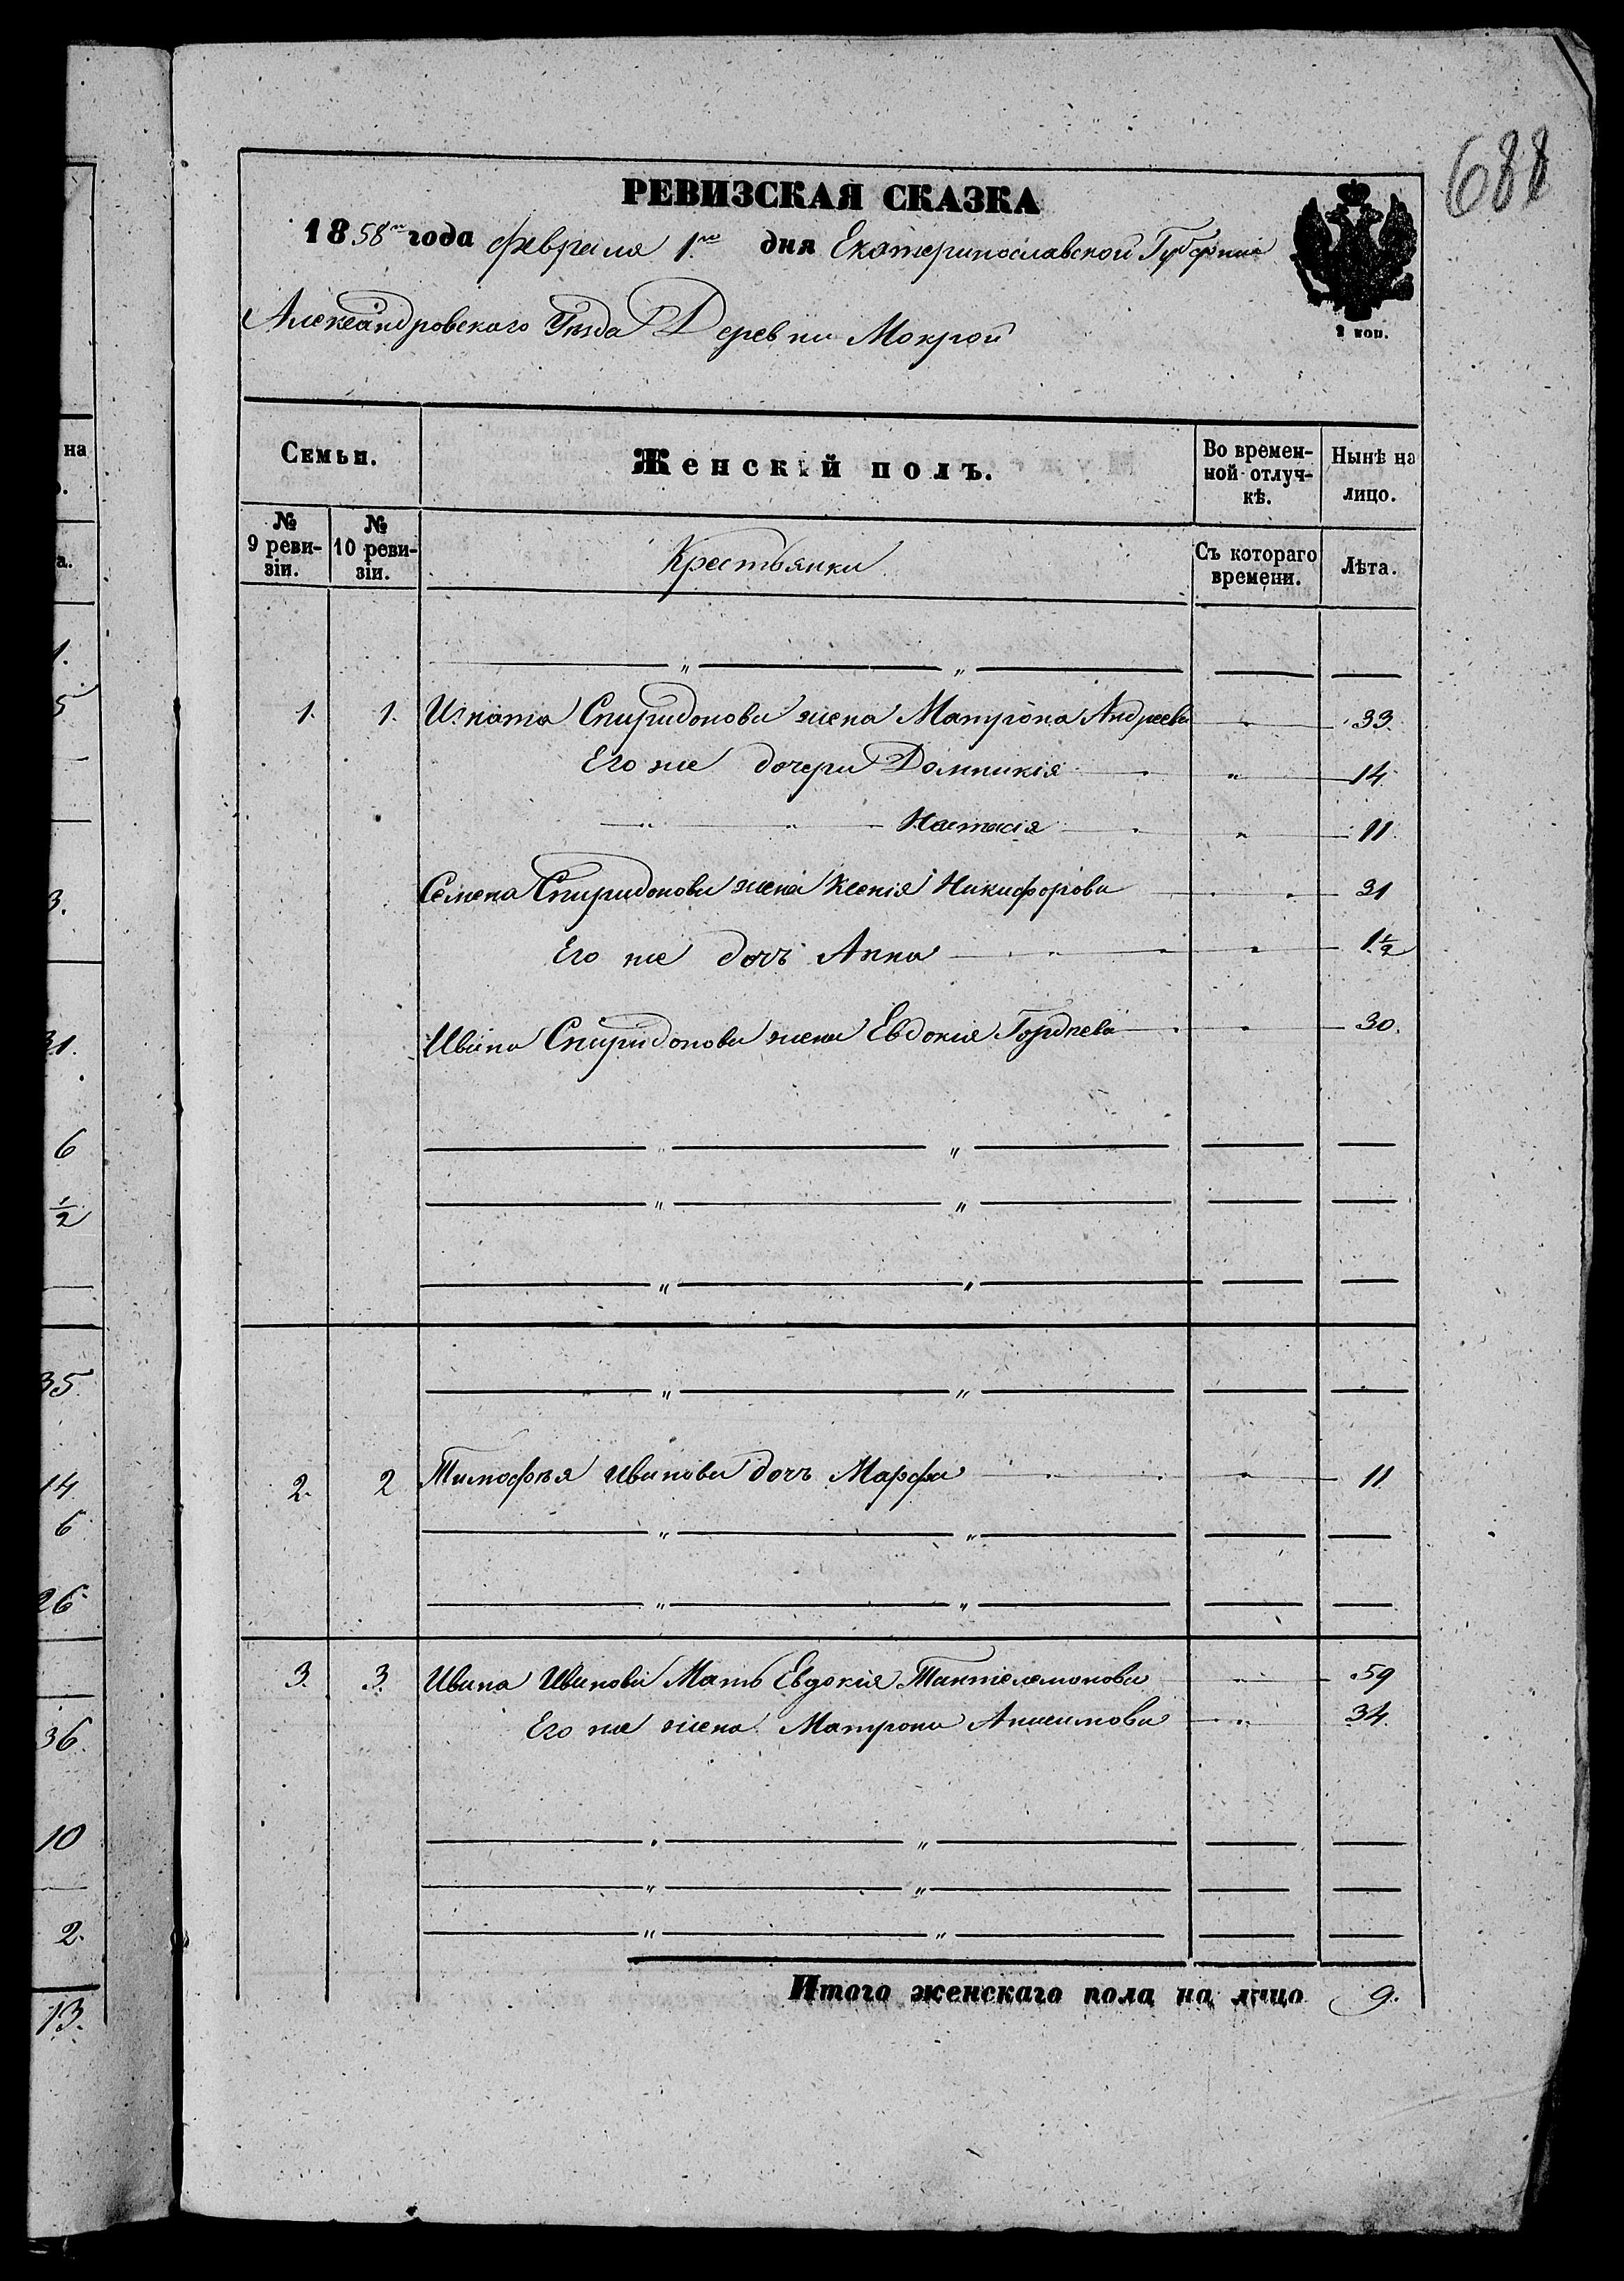 688
РЕВИЗСКАЯ СКАЗКА
1858го года февраля 1го дня Екатеринославской Губернии
Александровского Уѣзда Деревни Мокрой
2 коп.
Семьи.
Женскій полъ.
Во времен-
ной отлуч-
кѣ.
Нынѣ на
лицо.
№
9 реви-
зіи.
№
10 реви-
зіи.
Крестьянки
Съ котораго
времени.
Лѣта.
1. 1. Игната Спиридонова жена Матрона Андреева 33
Его же дочери Домникія 14
Настасія 11
Семена Спиридонова жена Ксенія Никифорова 31
Его же дочь Анна 1½
Ивана Спиридонова жена Евдокія Гордѣева 30.
2. 2 Тимофѣя Иванова дочь Марфа 11
3. 3. Ивана Иванова Мать Евдокія Пантелемонова 59
Его же жена Матрона Анисимова 34
Итого женскаго пола на лицо 9.
на
а.
1.
5
3.
31.
6
½
35.
14
6
26
36.
10
2.
13.